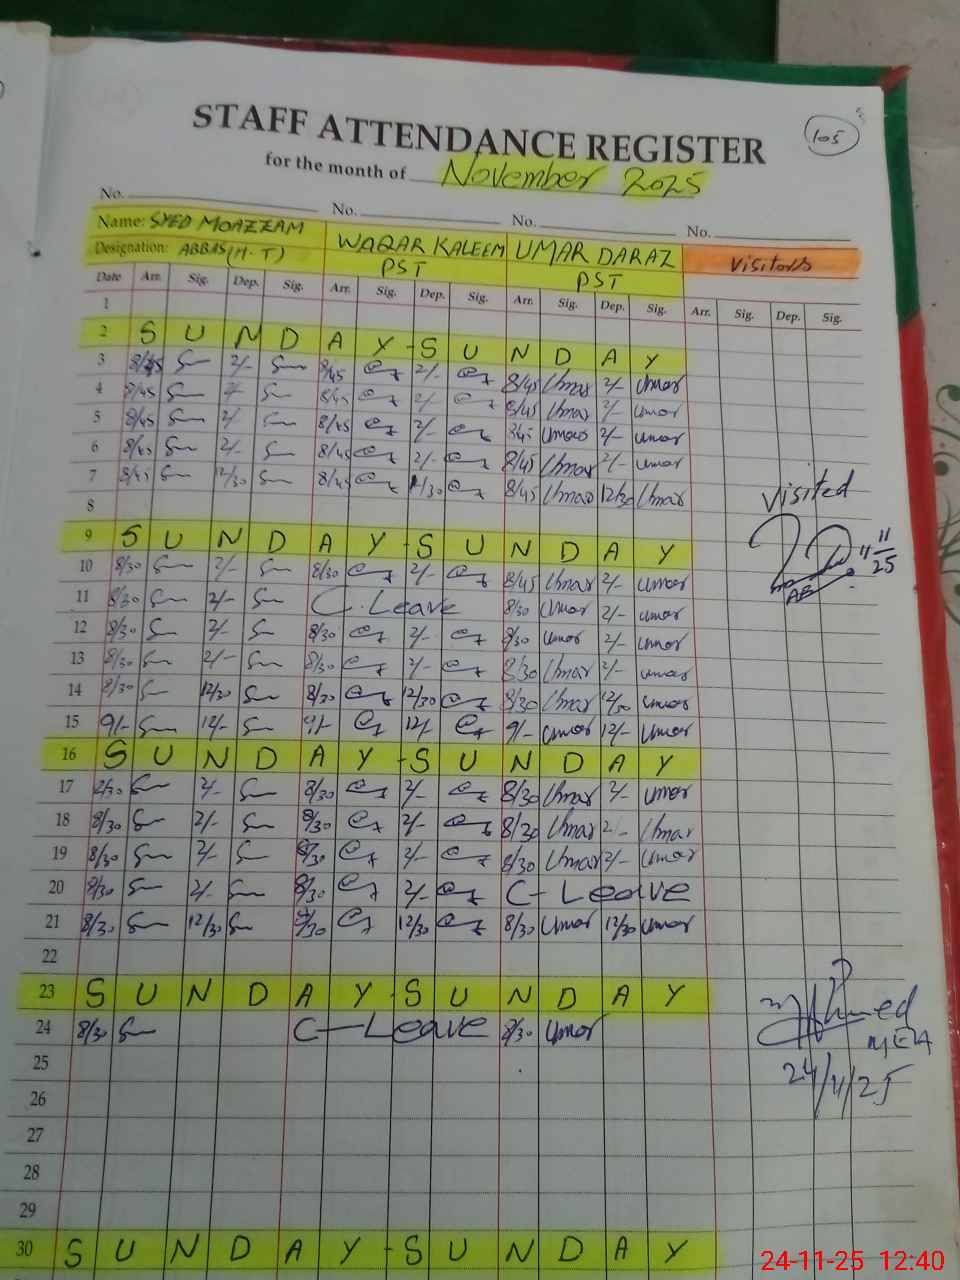 105
STAFF ATTENDANCE REGISTER
for the month of November 2025
No. No. No. No.
Name: SYED MOAZZAM WAQAR KALEEM UMAR DARAZ Visitors
Designation: ABBAS (H-T) PST PST
Date Arr. Sig. Dep. Sig. Arr. Sig. Dep. Sig. Arr. Sig. Dep. Sig. Arr. Sig. Dep. Sig.
1
2 S U N D A Y - S U N D A Y
3 8/45 2/- 8/45 2/- 8/45 Umar 2/- Umar
4 8/45 2/- 8/45 2/- 8/45 Umar 2/- Umar
5 8/45 2/- 8/45 2/- Umar 2/- Umar
6 8/45 2/- 8/45 2/- 8/45 Umar 2/- Umar
7 8/45 12/30 8/45 8/45 Umar 12/30 Umar
8
Visited
9 S U N D A Y - S U N D A Y
11/11/25
10 8/30 2/- 8/30 2/- 8/45 Umar 2/- Umar
11 8/30 2/- C. Leave 8/30 Umar 2/- Umar
12 8/30 2/- 8/30 2/- 8/30 Umar 2/- Umar
13 8/30 2/- 8/30 2/- 8/30 Umar 2/- Umar
14 8/30 12/30 8/30 12/30 8/30 Umar 12/30 Umar
15 9/- 12/- 9/- 12/- 9/- Umar 12/- Umar
16 S U N D A Y - S U N D A Y
17 2/- 8/30 2/- 8/30 Umar 2/- Umar
18 8/30 2/- 8/30 2/- 8/30 Umar 2/- Umar
19 8/30 2/- 8/30 2/- 8/30 Umar 2/- Umar
20 8/30 2/- 8/30 2/- C-Leave
21 8/30 12/30 8/30 12/30 8/30 Umar 12/30 Umar
22
23 S U N D A Y - S U N D A Y
24 8/30 C-Leave 8/30 Umar
MEA
24/11/25
25
26
27
28
29
30 S U N D A Y - S U N D A Y
24-11-25 12:40